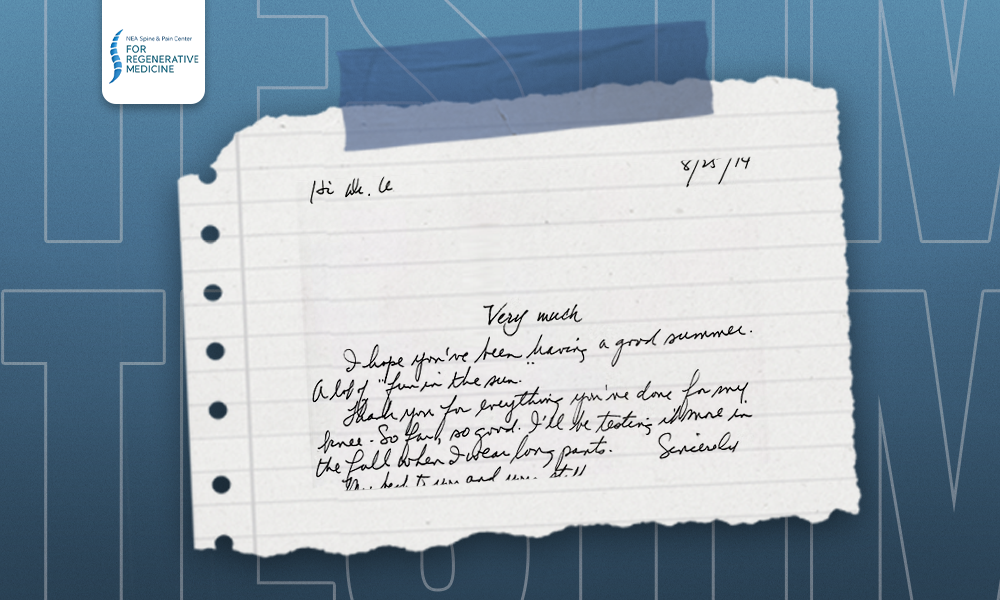 NEA Spine & Pain Center
FOR
REGENERATIVE
MEDICINE
TESTIM
8/25/14
Hi Dr.
Very much
I hope you've been having a good summer.
A lot of "fun in the sun."
Thank you for everything you've done for my
knee. So far, so good. I'll be testing it more in
the fall when I wear long pants.
Sincerely
TESTIM